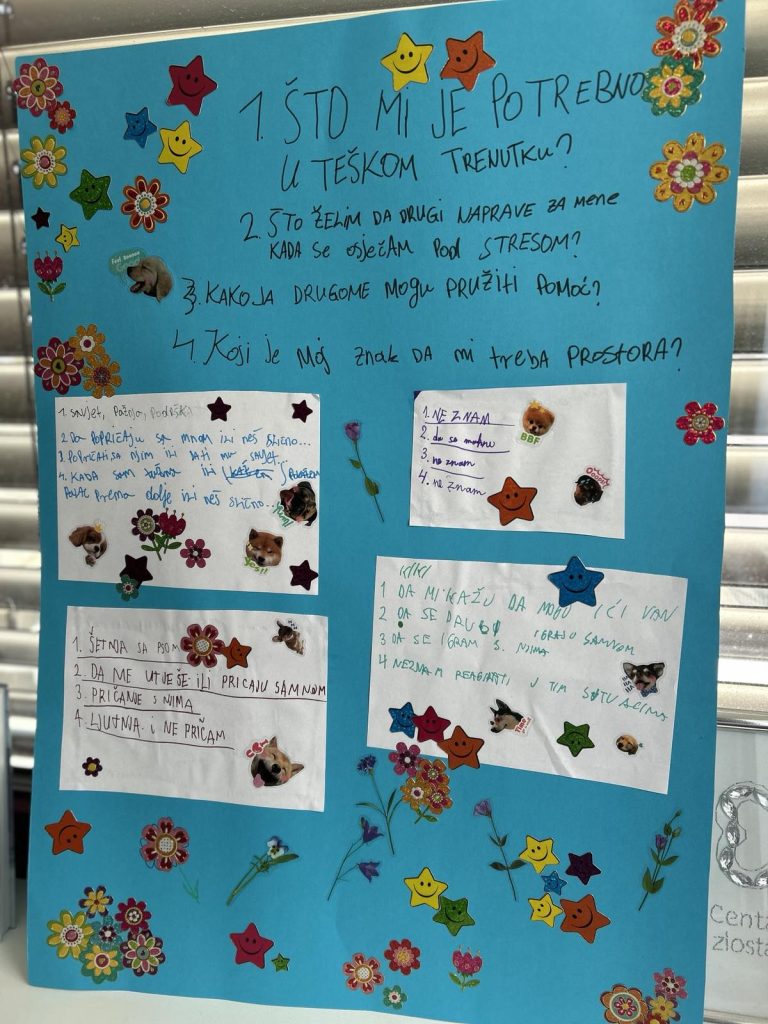 1. ŠTO MI JE POTREBNO
U TEŠKOM TRENUTKU?
2. ŠTO ŽELIM DA DRUGI NAPRAVE ZA mene
KADA se osječAM POD STRESOM?
3. KAKO JA DRUGOME MOGU PRUŽITI POMOĆ?
4. Koji je Moj znak DA mi treba PROSTORA?
1. Savjet, Pažnja, Podrška
2. DA POPRIČAJU SA mnom ili neš slično...
3. POPRIČATI SA NJIM ILI DATI MU SAVJET...
4. KADA SAM ili
prema dolje ili neš slično...
1. NE ZNAM
2. da sa mnom
3. ne znam
4. ne znam
BBF
Yes!!
1. ŠETNJA SA PSOM
2. DA ME UTJEŠE ILI PRICAJU SAMNOM
3. PRIČANJE S NJIMA
4. LJUTNJA i NE PRIČAM
KIKI
1 DA MI KAŽU DA MOGU IĆI VAN
2 DA SE DRUGI IGRAJU SAMNOM
3 DA SE IGRAM S NJIMA
4 NEZNAM REAGIRATI U TIM SITUACIMA
Centa
zlosta